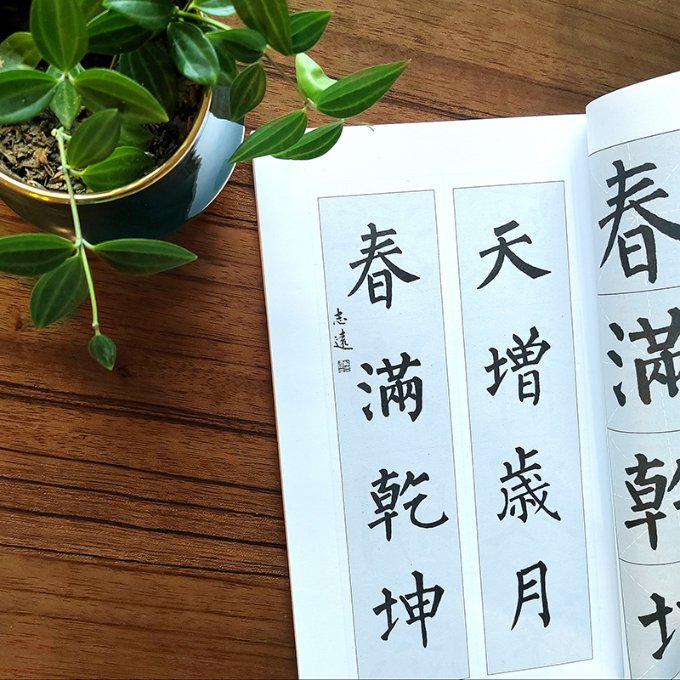 天增歲月
春滿乾坤
志遠
春滿乾